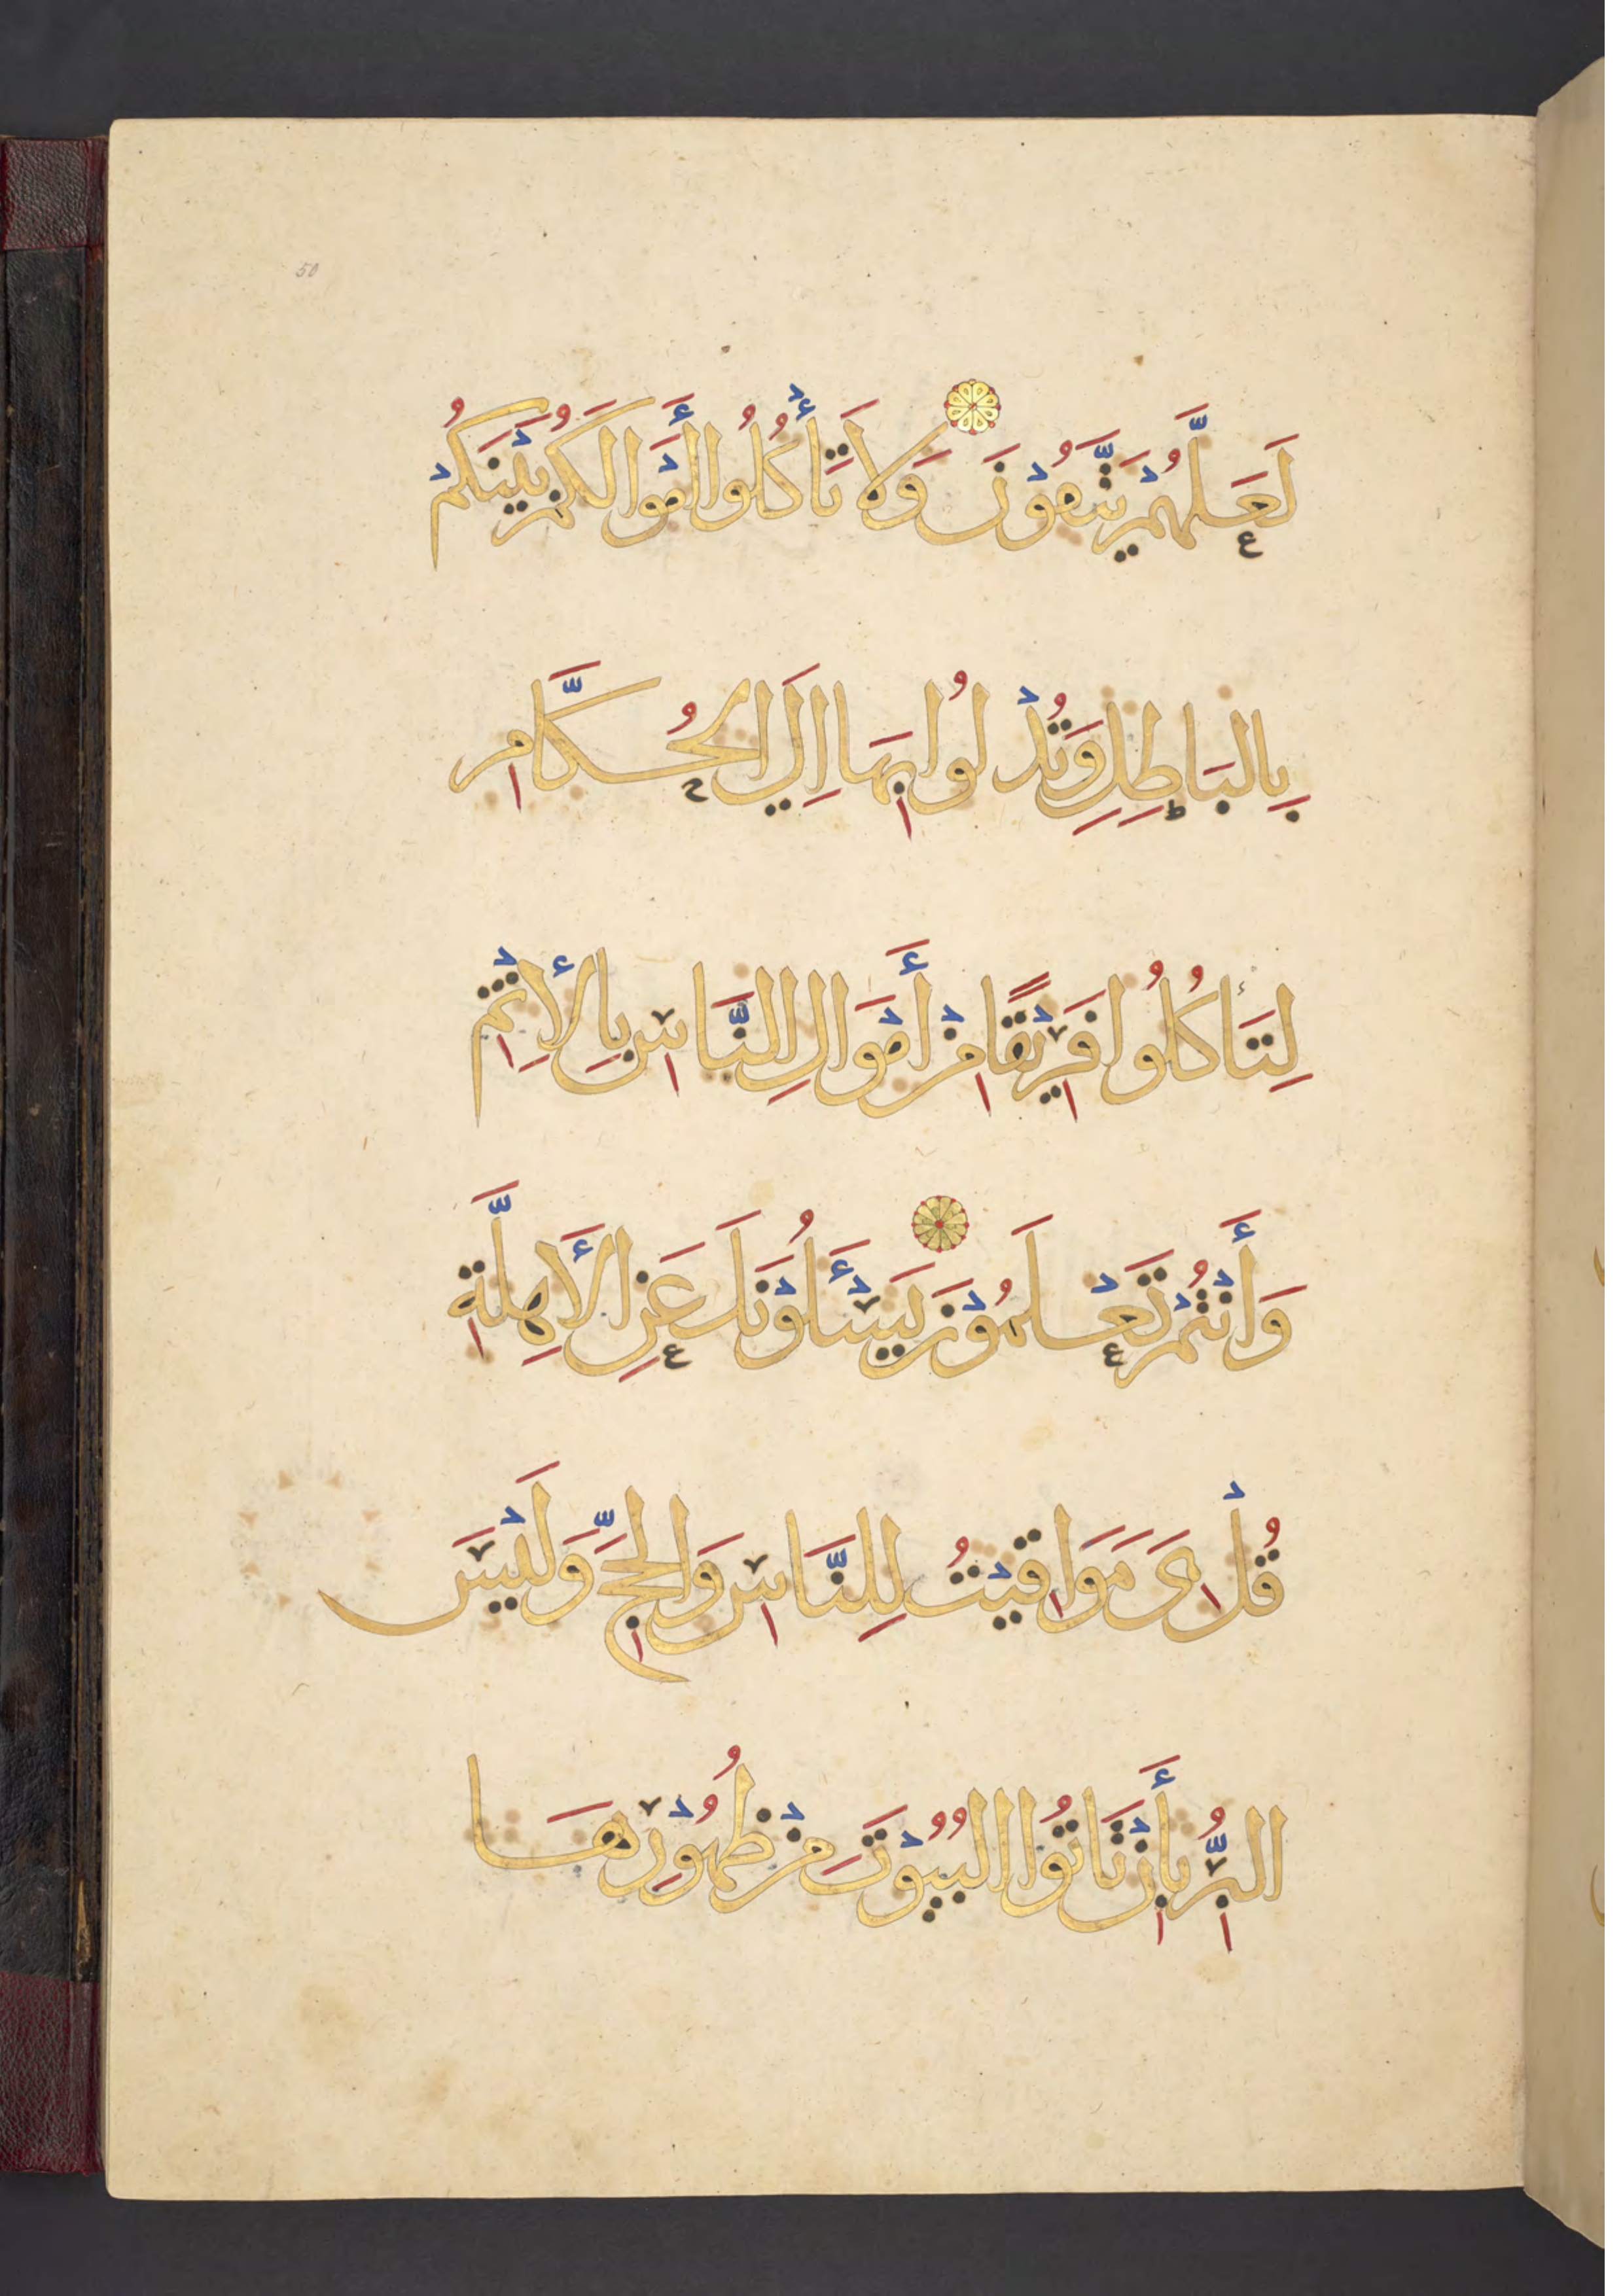 50
لَعَلَّهُمْ يَتَّقُوْنَ وَلَا تَأْكُلُوا أَمْوَالَكُمْ بَيْنَكُمْ
بِالبَاطِلِ وَتُدْلُوا بِهَا اِلَى الحُكَّامِ
لِتَأكُلُوا فَرِيْقًا مِنْ أَمْوَالِ النَّاسِ بِالإِثْمِ
وَأَنْتُمْ تَعْلَمُوْنَ يَسْـَٔلُوْنَكَ عَنِ الأَهِلَّةِ
قُلْ هِىَ مَوَاقِيْتُ لِلنَّاسِ وَالحَجِّ وَلَيْسَ
البِرُّ بِأَنْ تَاتُوا البُيُوْتَ مِنْ ظُهُوْرِهَا